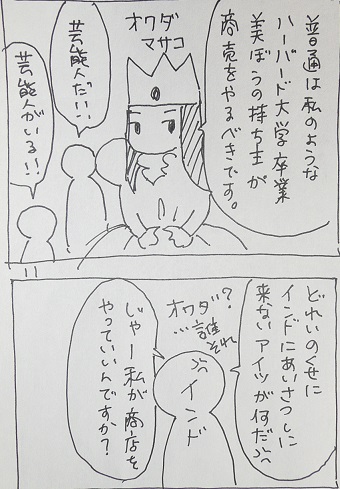 普通は私のような
ハーバード大学卒業
美ぼうの持ち主が
商売をやるべきです。
オワダ
マサコ
芸能人だ!!
芸能人がいる!!
どれいのくせに
インドにあいさつしに
来ないアイツが何だ
オワダ?
…誰それ
インド
じゃー私が商店を
やっていいんですか?